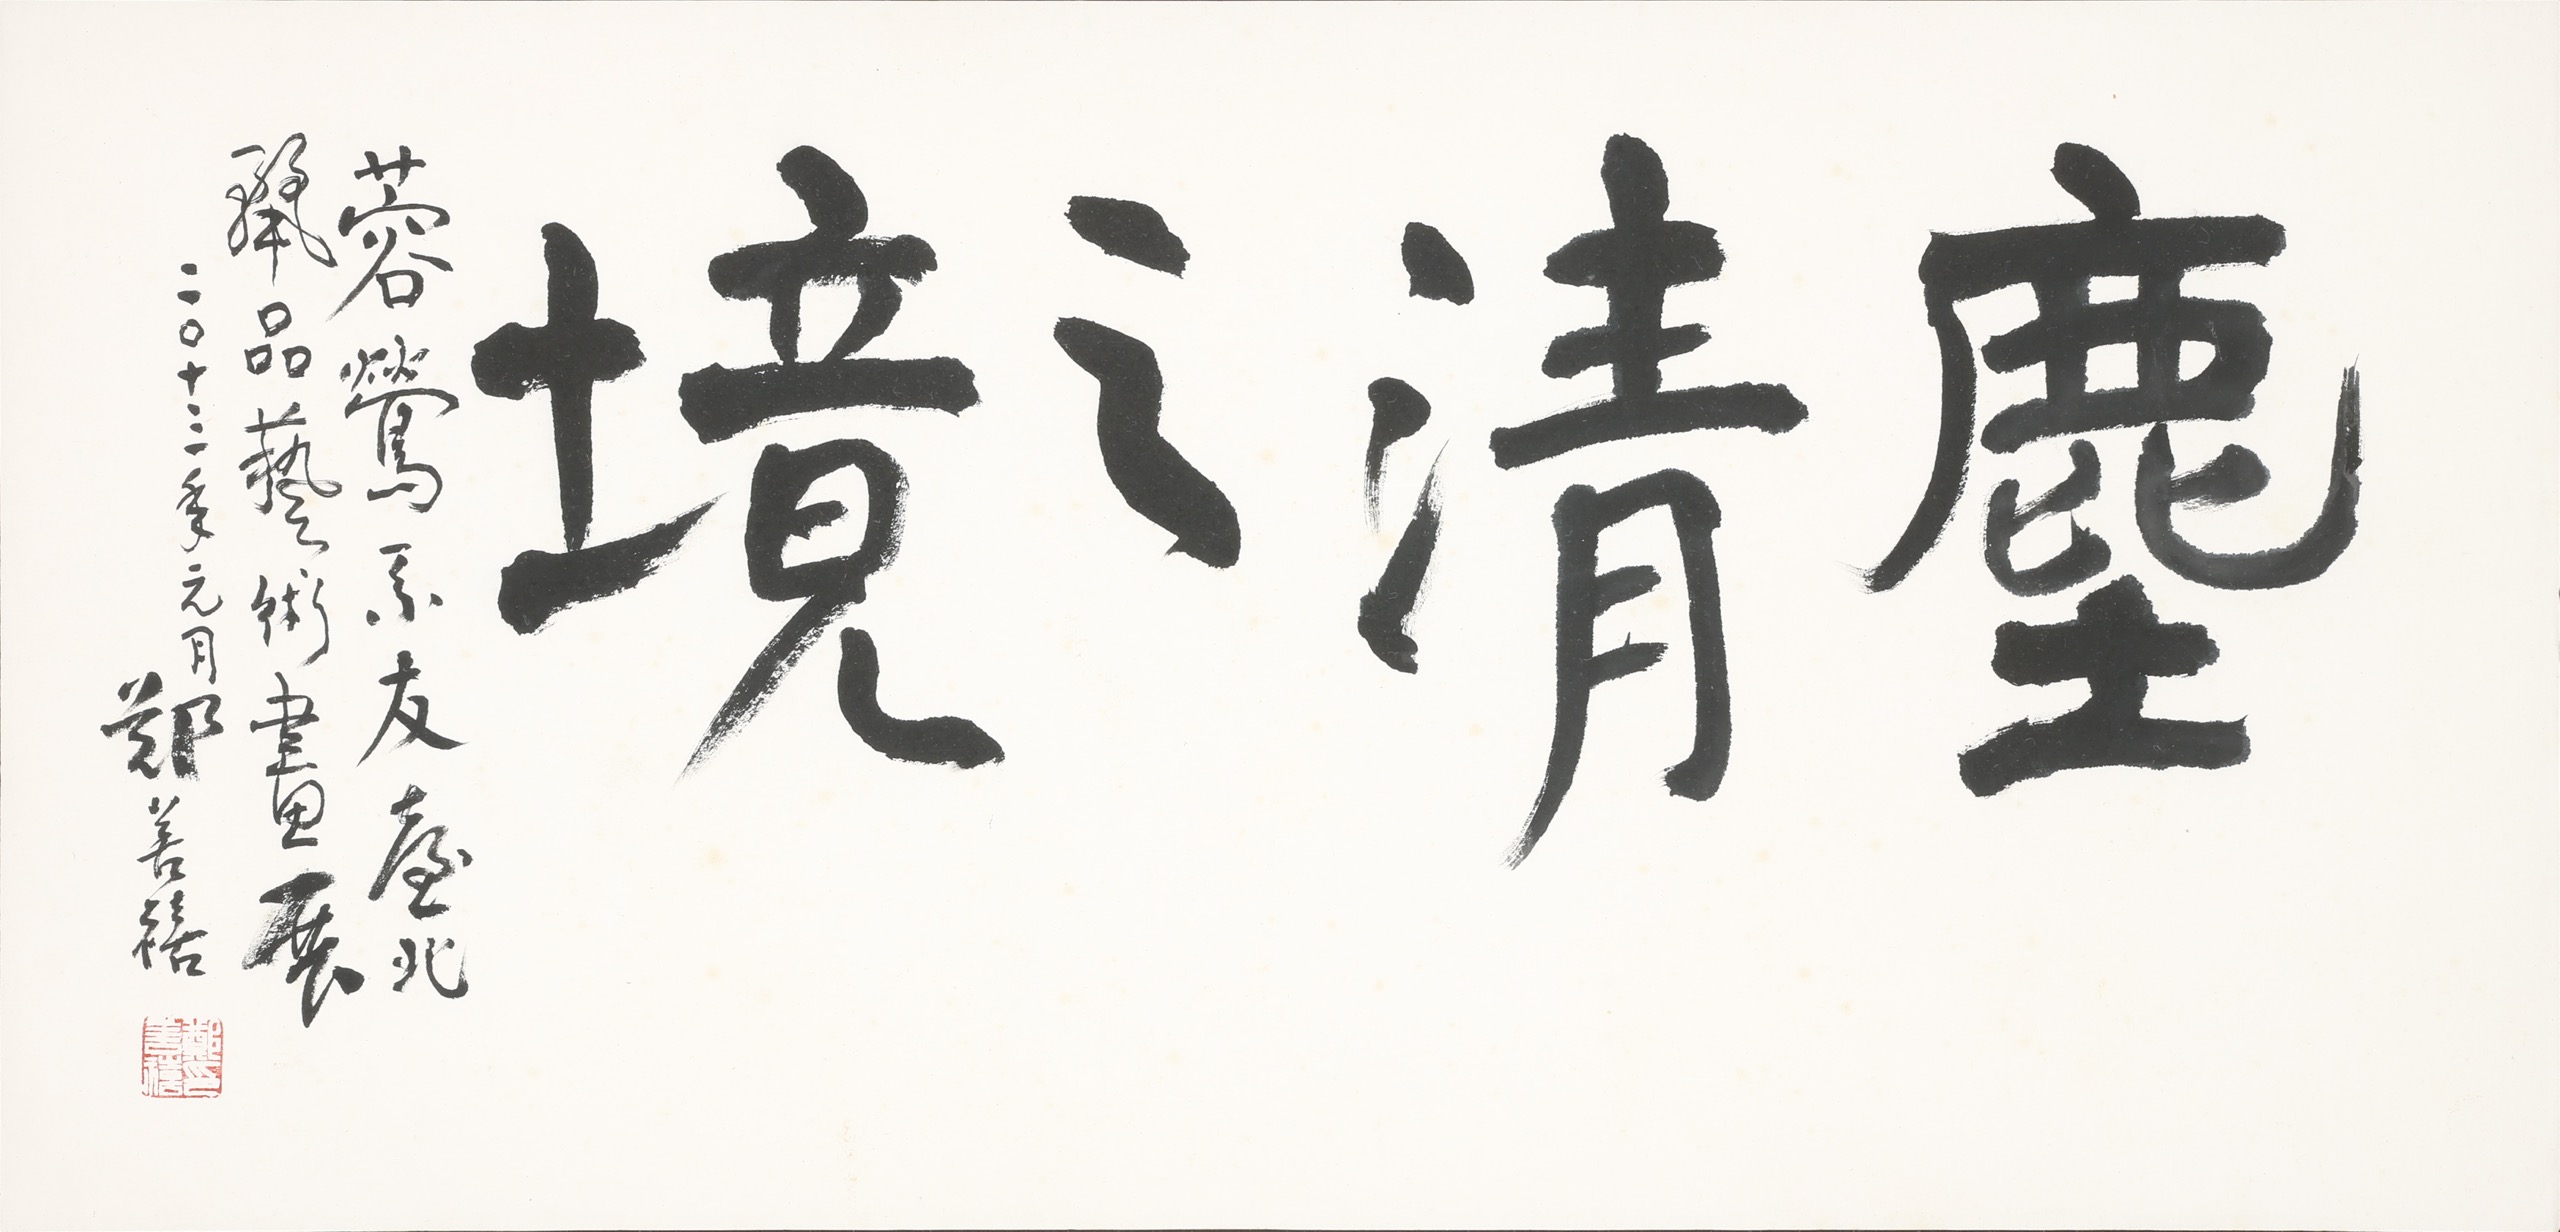 塵清之境
蓉鶯系友臺北
珮品藝術畫展
二〇十二年元月
鄭善禧